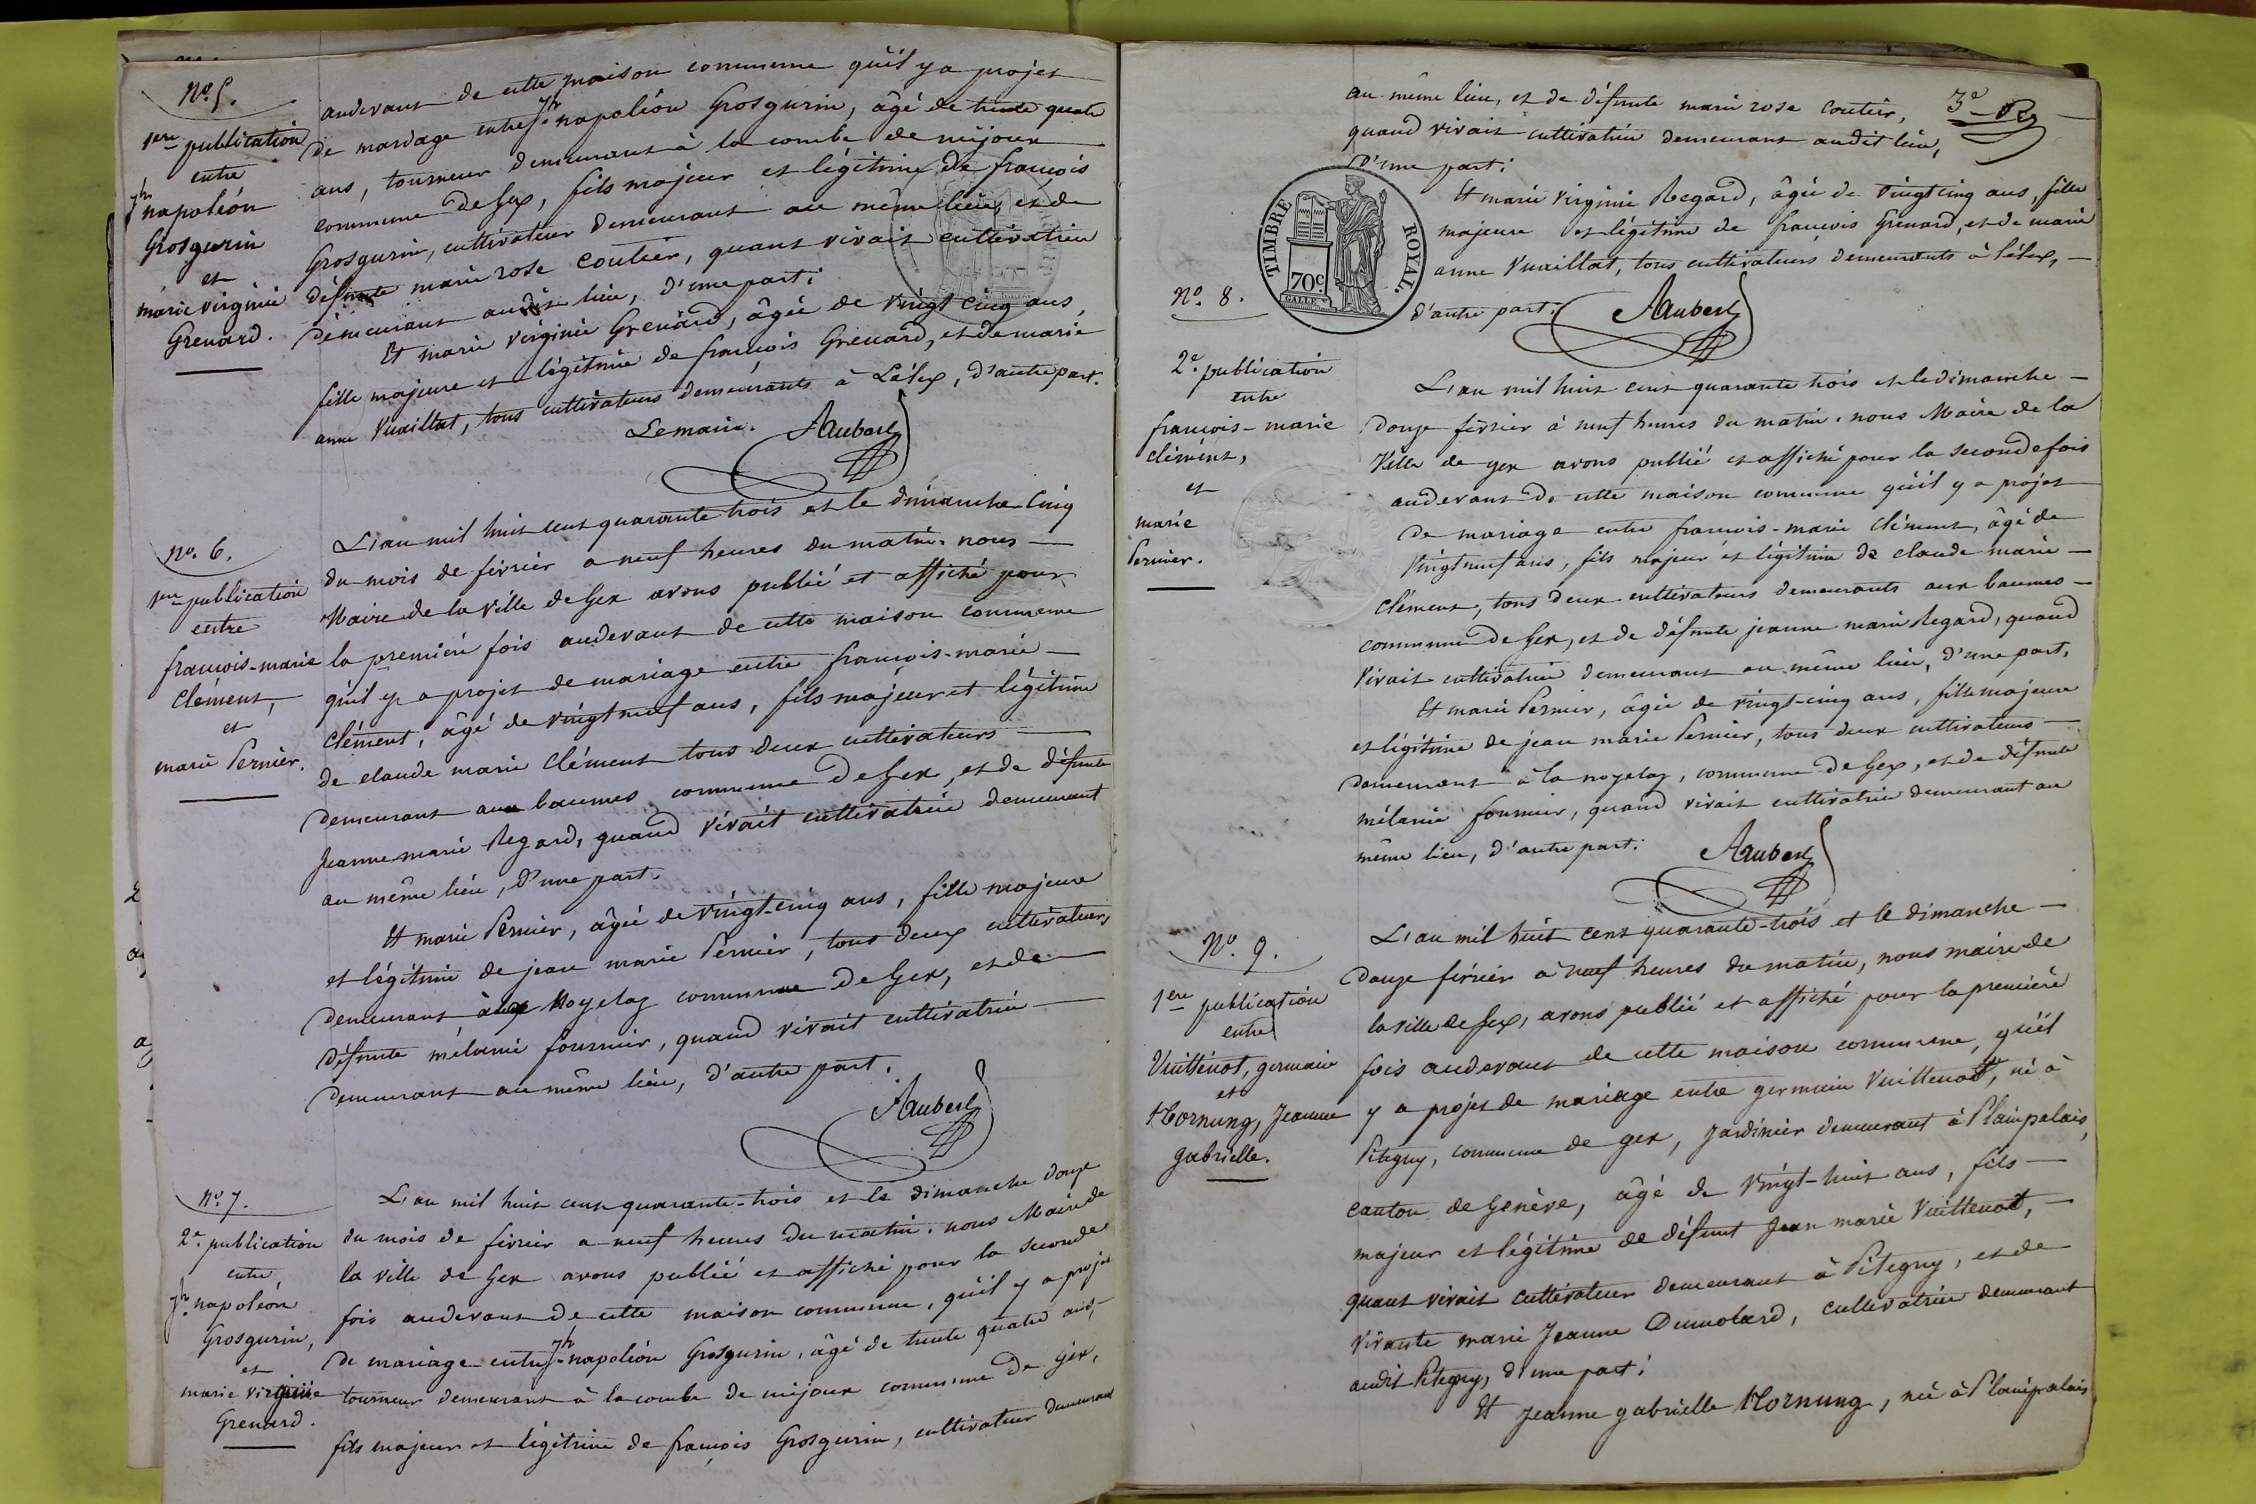 No. 5.
1ere publication
entre
Jh napoléon
Grosgurin
et
marie virginie
Grenard.
audevant de cette maison commune qu'il y a projet
de mariage entre Jh napoléon Grosgurin, âgé de trente quatre
ans, tourneur demeurant à la combe de mijoux
commune de Gex, fils majeur et légitime de françois
Grosgurin, cultivateur demeurant au même lieu, et de
défunte marie rose coutier, quant vivait cultivatrice
demeurant audit lieu, d'une part;
Et marie virginie Grenard, âgée de vingt cinq ans,
fille majeure et légitime de françois Grenard, et de marie
anne Vuaillat, tous cultivateurs demeurants à Lélex, d'autre part.
Le maire. AAubert
No. 6.
1ere publication
entre
françois-marie
Clément,
et
marie Pernier.
L'an mil huit cent quarante trois et le dimanche cinq
du mois de février a neuf heures du matin. nous
Maire de la ville de Gex avons publié et affiché pour
la première fois audevant de cette maison commune
qu'il y a projet de mariage entre françois-marie
Clément, âgé de vingt neuf ans, fils majeur et légitime
de claude marie Clément tous deux cultivateurs
demeurant aux baumes commune de Gex, et de défunte
Jeanne marie Regard, quand vivait cultivatrice demeurant
au même lieu, d'une part.
Et marie Pernier, âgée de vingt-cinq ans, fille majeure
et légitime de jean marie Pernier, tous deux cultivateurs
demeurant à la Noyelaz commune de Gex, et de
défunte mélanie fournier, quand vivait cultivatrice
demeurant au même lieu, d'autre part.
AAubert
No. 7.
2e. publication
entre,
Jh. napoléon
Grosgurin,
et
marie virginie
Grenard.
L'an mil huit cent quarante-trois et le dimanche douze
du mois de février a neuf heures du matin. nous Maire de
la ville de Gex avons publié et affiché pour la seconde
fois audevant de cette maison commune, qu'il y a projet
de mariage entre Jh napoléon Grosgurin, âgé de trente quatre ans,
tourneur demeurant à la combe de mijoux commune de Gex,
fils majeur et légitime de françois Grosgurin, cultivateur demeurant
au même lieu, et de défunte marie rose coutier,
quand vivait cultivatrice demeurant audit lieu,
d'une part;
3e
TIMBRE ROYAL.
70c.
GALLE
Et marie virginie Regard, âgée de vingt cinq ans, fille
majeure et légitime de françois Grenard, et de marie
anne Vuaillat, tous cultivateurs demeurants à Lélex,
d'autre part;
AAubert
No. 8.
2e. publication
entre
françois-marie
clément,
et
marie
Pernier.
L'an mil huit cent quarante trois et le dimanche
douze février à neuf heures du matin. nous Maire de la
Ville de gex avons publié et affiché pour la seconde fois
audevant de cette maison commune qu'il y a projet
de mariage entre françois-marie clément, âgé de
vingt neuf ans, fils majeur et légitime de claude marie
clément, tous deux cultivateurs demeurants aux baumes
commune de Gex, et de défunte jeanne marie Regard, quand
vivait cultivatrice demeurant au même lieu, d'une part,
Et marie Pernier, âgée de vingt-cinq ans, fille majeure
et légitime de jean marie Pernier, tous deux cultivateurs
demeurant à la noyelaz, commune de Gex, et de défunte
mélanie fournier, quand vivait cultivatrice demeurant au
même lieu, d'autre part;
AAubert
No. 9.
1ere publication
entre
Vuittenot, germain
et
Hornung, Jeanne
gabrielle.
L'an mil huit cent quarante-trois et le dimanche
douze février à neuf heures du matin, nous maire de
la ville de Gex, avons publié et affiché pour la première
fois audevant de cette maison commune, qu'il
y a projet de mariage entre germain Vuittenot, né à
Pitegny, commune de gex, jardinier demeurant à Plainpalais,
canton de Genève, âgé de vingt-huit ans, fils
majeur et légitime de défunt Jean marie Vuittenot,
quant vivait cultivateur demeurant à Pitegny, et de
vivante marie Jeanne Dumolard, cultivatrice demeurant
audit Pitegny, d'une part;
Et Jeanne gabrielle Hornung, née à Plainpalais